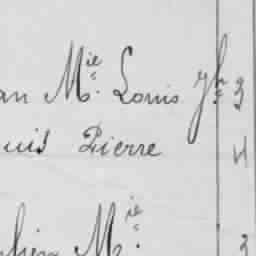 an M.ie Louis Jh 3
uis Pierre 4
M.ie 3